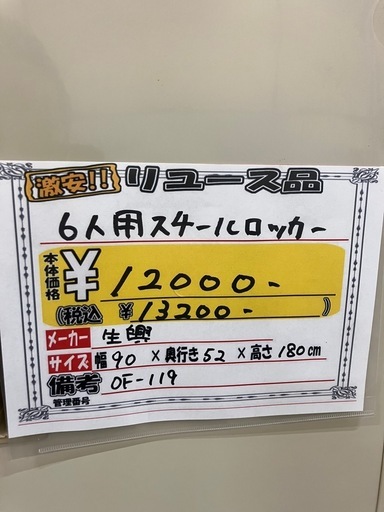 激安!! リユース品
6人用スチールロッカー
本体価格 ¥ 12000-
(税込 ¥13200- )
メーカー 生興
サイズ 幅90×奥行き52×高さ180cm
備考 OF-119
管理番号